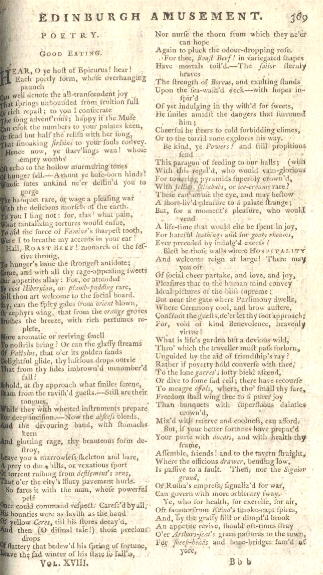 EDINBURGH AMUSEMENT. 369
POETRY.
GOOD EATING.
HEAR, O ye host of Epicurus! hear!
Each portly form, whose overhanging
paunch
Can well denote the all-transcendent joy
That springs unbounded from fruition full
Of rich repast; to you I consecrate
The song advent'rous; happy if the Muse
Can cook the numbers to your palates keen,
Or send but half the relish with her song,
That smoaking sirloins to your souls convey.
Hence now, ye starv'lings wan! whose
empty wombs
Oft echo to the hollow murmuring tones
Of hunger fell.—Avaunt ye base-born hinds!
Whose fates unkind ne'er destin'd you to
gorge
The banquet rare, or wage a pleasing war
With the delicious morsels of the earth.
To you I sing not: for, alas! what pain,
What tantalizing tortures would ensue,
To aid the force of Famine's sharpest tooth,
Were I to breathe my accents in your ear!
Hail, ROAST BEEF! monarch of the fes-
tive throng,
To hunger's bane the strongest antidote;
Come, and with all thy rage-appeasing sweets
Our appetites allay! For, or attended
By root Hibernian, or plumb-pudding rare,
Still thou art welcome to the social board.
Say, can the spicy gales from orient blown,
Or zephyrs wing, that from the orange groves
Brushes the breeze, with rich perfumes re-
plete,
More aromatic or reviving smell
To nostrils bring? Or can the glassy streams
Of Pactolus, that o'er its golden sands
Delightful glide, thy luscious drops outvie
That from thy sides imbrown'd unnumber'd
fall?
Behold, at thy approach what smiles serene
Beam from the ravish'd guests.—Still are their
tongues,
While they with whetted instruments prepare
For deep incision.—Now the abscess bleeds,
And the devouring band, with stomachs
keen
And glutting rage, thy beauteous form de-
stroy,
Leave you a marrowless skeleton and bare,
A prey to dunghills, or vexatious sport
Of torrent rushing from defilement's urns,
That o'er the city's flinty pavement hurls.
So fares it with the man, whose powerful
pelf
Once could command respect. Caress'd by all,
His bounties were as lavish as the hand
Of yellow Ceres, till his stores decay'd,
And then (O dismal tale!) those precious
drops
Of flattery that bedew'd his spring of fortune,
Leave the sad winter of his state so fall'n,
VOL. XVIII.
Nor nurse the thorn from which they ne'er
can hope
Again to pluck the odour-dropping rose.
For thee, Roast Beef! in variegated shapes
Have mortals toil'd.—The sailor sternly
braves
The strength of Boreas, and exulting stands
Upon the sea-wash'd deck—with hopes in-
spir'd
Of yet indulging in thy wish'd for sweets,
He smiles amidst the dangers that surround
him;
Chearful he steers to cold forbidding climes,
Or to the torrid zone explores his way.
Be kind, ye Powers! and still propitious
send
This paragon of feeding to our halls;
With this regal'd, who would vain-glorious
wish
For towering pyramids superbly crown'd,
With jellies, syllabubs, or ice-creams rare?
These can amuse the eye, and may bestow
A short-liv'd pleasure to a palate strange;
But, for a moment's pleasure, who would
vend
A life-time that would else be spent in joy,
For hateful loathings and for gouty rheums,
Ever preceded by indulg'd excess?
Blest be those walls where HOSPITALITY
And welcome reign at large! There may
you oft
Of social cheer partake, and love, and joy,
Pleasures that to the human mind convey
Ideal pictures of the bliss supreme:
But near the gate where Parsimony dwells,
Where Ceremony cool, and brow austere,
Confront the guests, ne'er let thy foot approach;
For, void of kind Benevolence, heavenly
virtue!
What is life's garden but a devious wild,
Thro' which the traveller must pass forlorn,
Unguided by the aid of friendship's ray?
Rather if poverty hold converse with thee,
To the lone garret's lofty bield ascend,
Or dive to some sad cell; there have recourse
To meagre offals, where, tho' small thy fare,
Freedom shall wing thee to a purer joy
Than banquets with superfluous dainties
crown'd,
Mix'd with reserve and coolness, can afford.
But, if your better fortunes have prepar'd
Your purse with ducats, and with health thy
frame,
Assemble, friends! and to the tavern straight,
Where the officious drawer, bending low,
Is passive to a fault. Then, nor the Signior
grand,
Or Russia's empress, signaliz'd for war,
Can govern with more arbitrary sway.
Ye, who for health, for exercise, for air,
Oft saunter from Edina's smoke-capt spires,
And, by the grassy hill or dimpl'd brook
An appetite revive, should oft-times stray
O'er Arthur-seat's green pastures to the town,
For sheep-heads and bone-bridges fam'd of
yore,
B b b